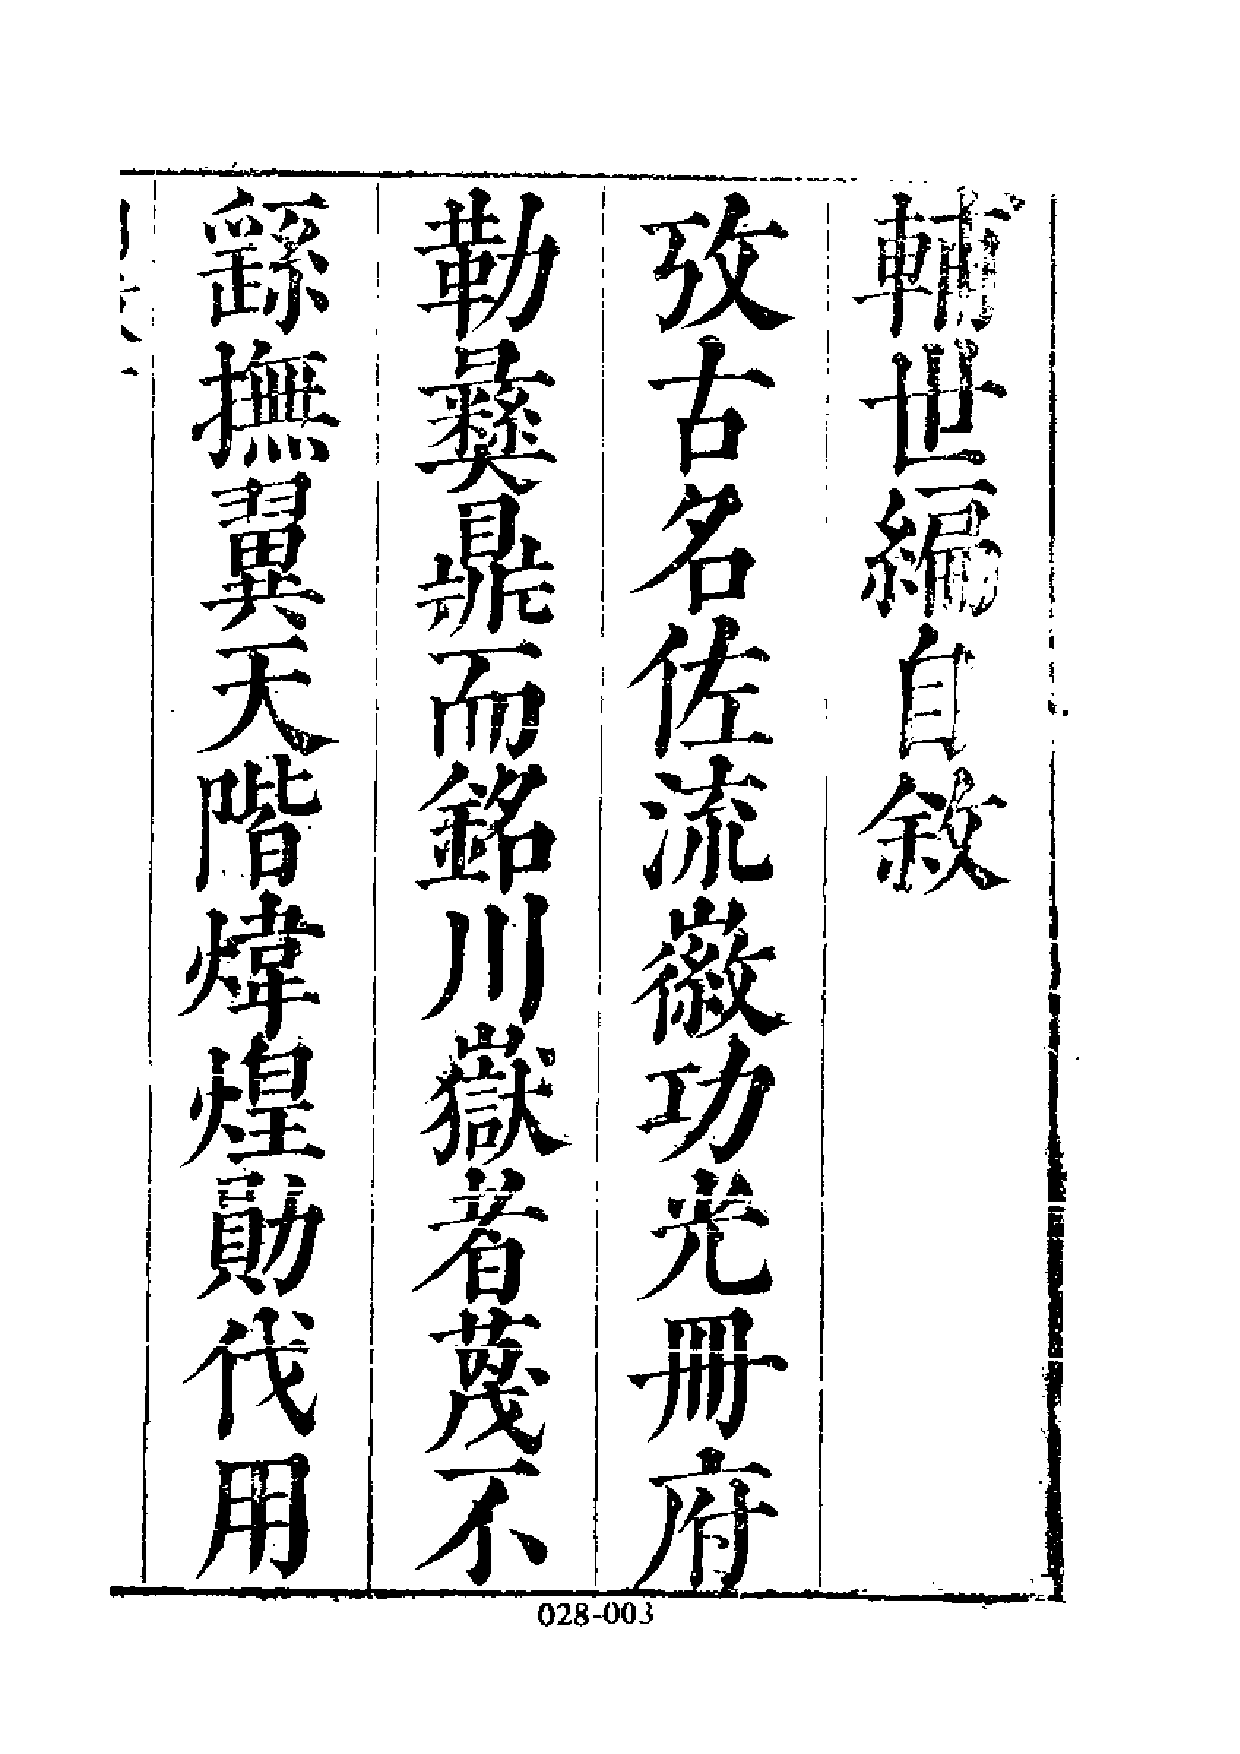 輔世編自敘
攷古名佐流徽功光冊府
勒彝鼎而銘川嶽者蔑不
繇撫翼天階煒煌勛伐用
028-003